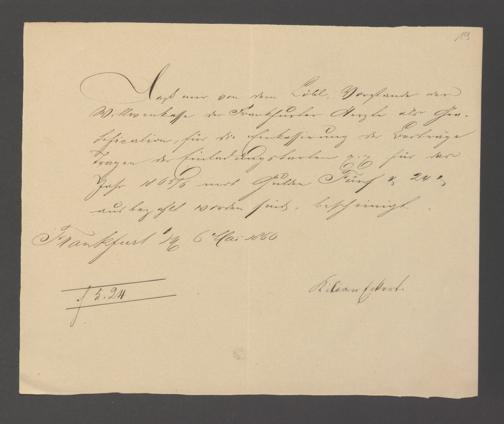 19
Daß mir von dem Löbl. Vorstande der
Wittwenkasse der Frankfurter Aerzte als Gra-
tification, für die der Vorträge
Tragen der Einladungskarten für das
Jahr mit Gulden Fünf x 24 x,
ausbezahlt worden sind, bescheinigt.
Frankfurt a/M 6 Mai 1860
f 5. 24